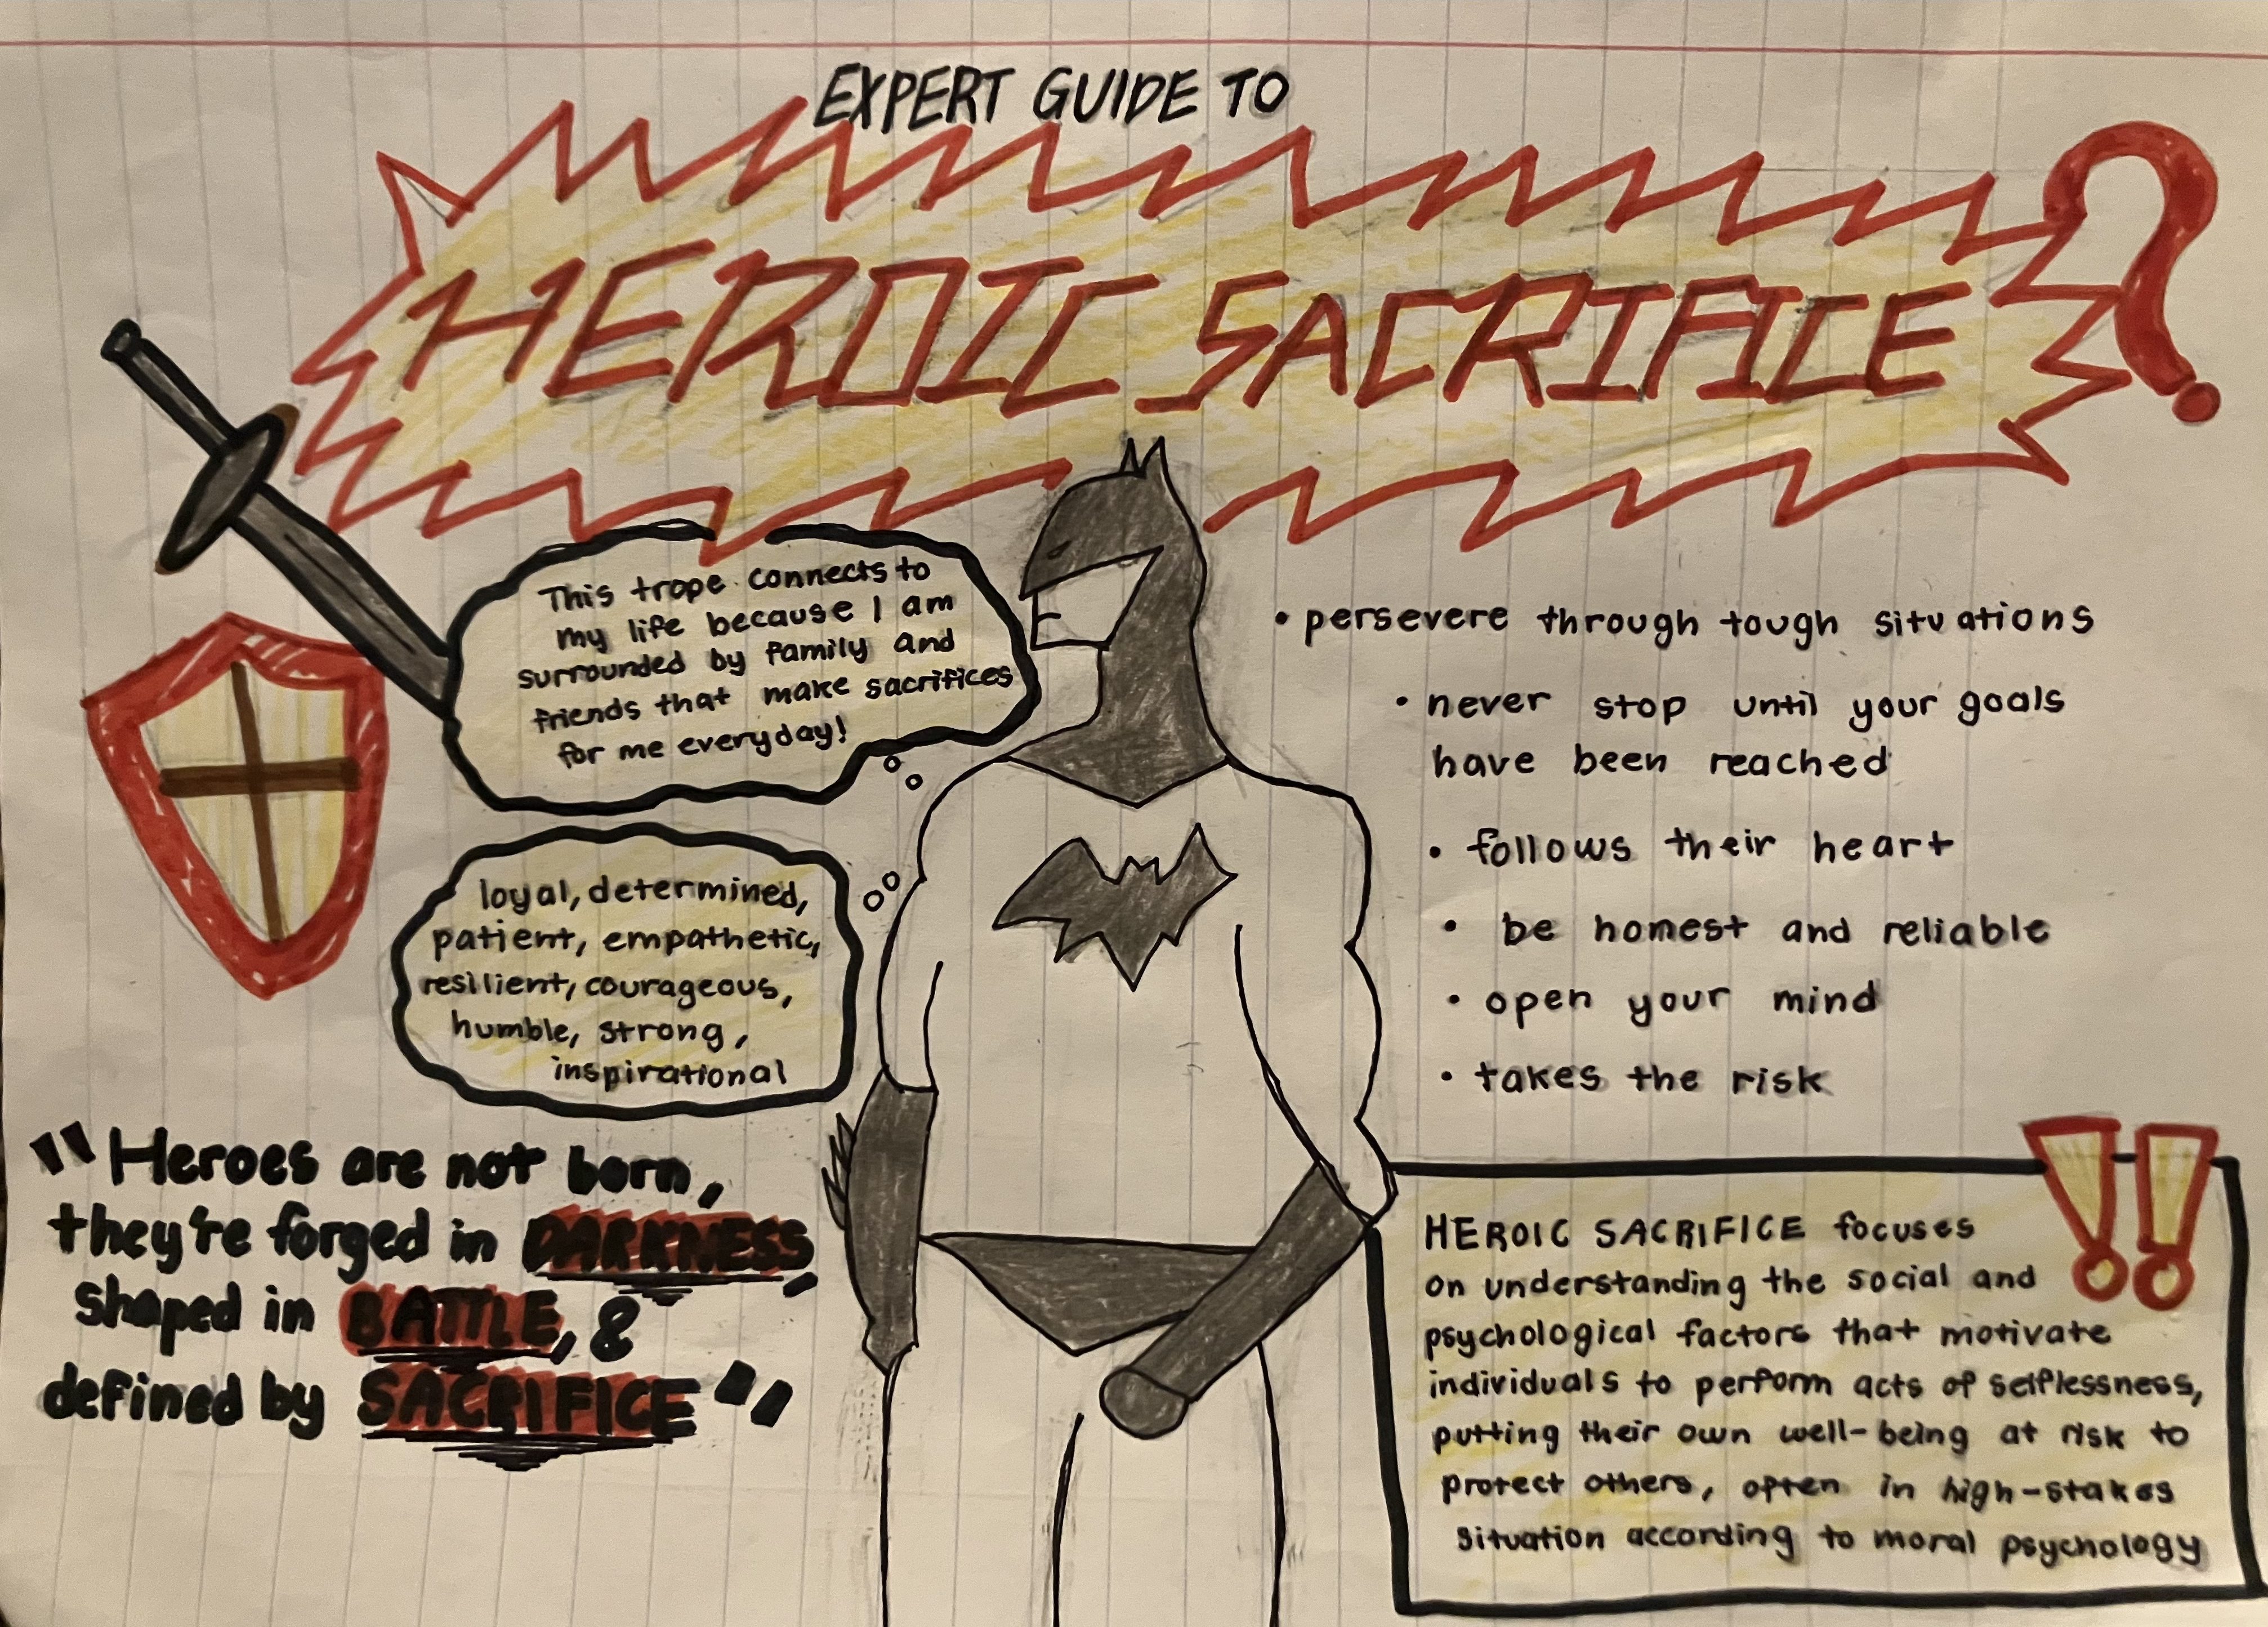 EXPERT GUIDE TO
HEROIC SACRIFICE?
This trope connects to
my life because I am
surrounded by family and
friends that make sacrifices
for me everyday!
loyal, determined,
patient, empathetic,
resilient, courageous,
humble, strong,
inspirational
"Heroes are not born,
they're forged in DARKNESS,
shaped in BATTLE, &
defined by SACRIFICE"
• persevere through tough situations
• never stop until your goals
have been reached
• follows their heart
• be honest and reliable
• open your mind
• takes the risk
HEROIC SACRIFICE focuses
on understanding the social and
psychological factors that motivate
individuals to perform acts of selflessness,
putting their own well-being at risk to
protect others, often in high-stakes
situation according to moral psychology
!!